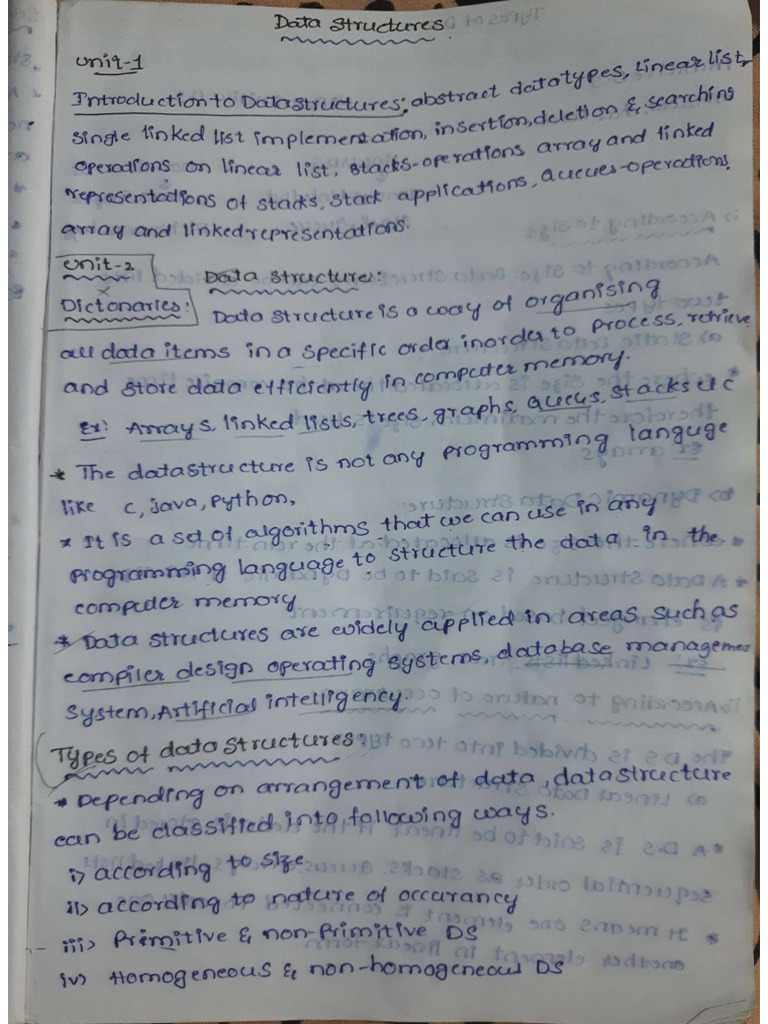 Data Structures
Unit-1
Introduction to Datastructures: abstract datatypes, Linear list,
single linked list implementation, insertion, deletion & searching
operations on linear list, stacks-operations array and linked
representations of stacks, stack applications, Queues-operations
array and linked representations.
Unit-2
Data structure:
Dictonaries:
Data structure is a way of organising
all data items in a specific order inorder to process, retrieve
and store data efficiently in computer memory.
Ex: Arrays, linked lists, trees, graphs, queus, stacks etc
* The datastructure is not any programming languge
like c, java, python,
* It is a set of algorithms that we can use in any
programming language to structure the data in the
computer memory
* Data structures are widely applied in areas such as
compiler design operating systems, database managemen
system, Artificial intelligency
Types of data structures:
* Depending on arrangement of data, datastructure
can be classified into following ways.
i) according to size
ii) according to nature of occurancy
iii) Primitive & non-Primitive DS
iv) Homogeneous & non-homogeneous DS